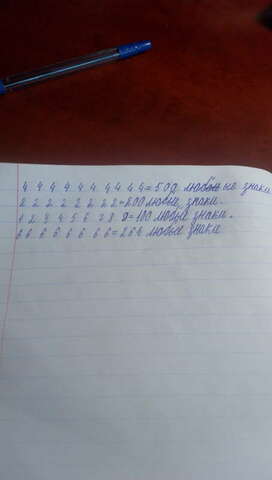 4 4 4 4 4 4 4 4 4 4 = 500 любые знаки
2 2 2 2 2 2 2 2 = 200 любые знаки.
1 2 3 4 5 6 7 8 9 = 100 любые знаки.
6 6 6 6 6 6 6 6 = 264 любые знаки